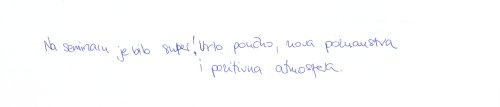 Na seminaru je bilo super! Vrlo poučno, nova poznanstva
i pozitivna atmosfera.